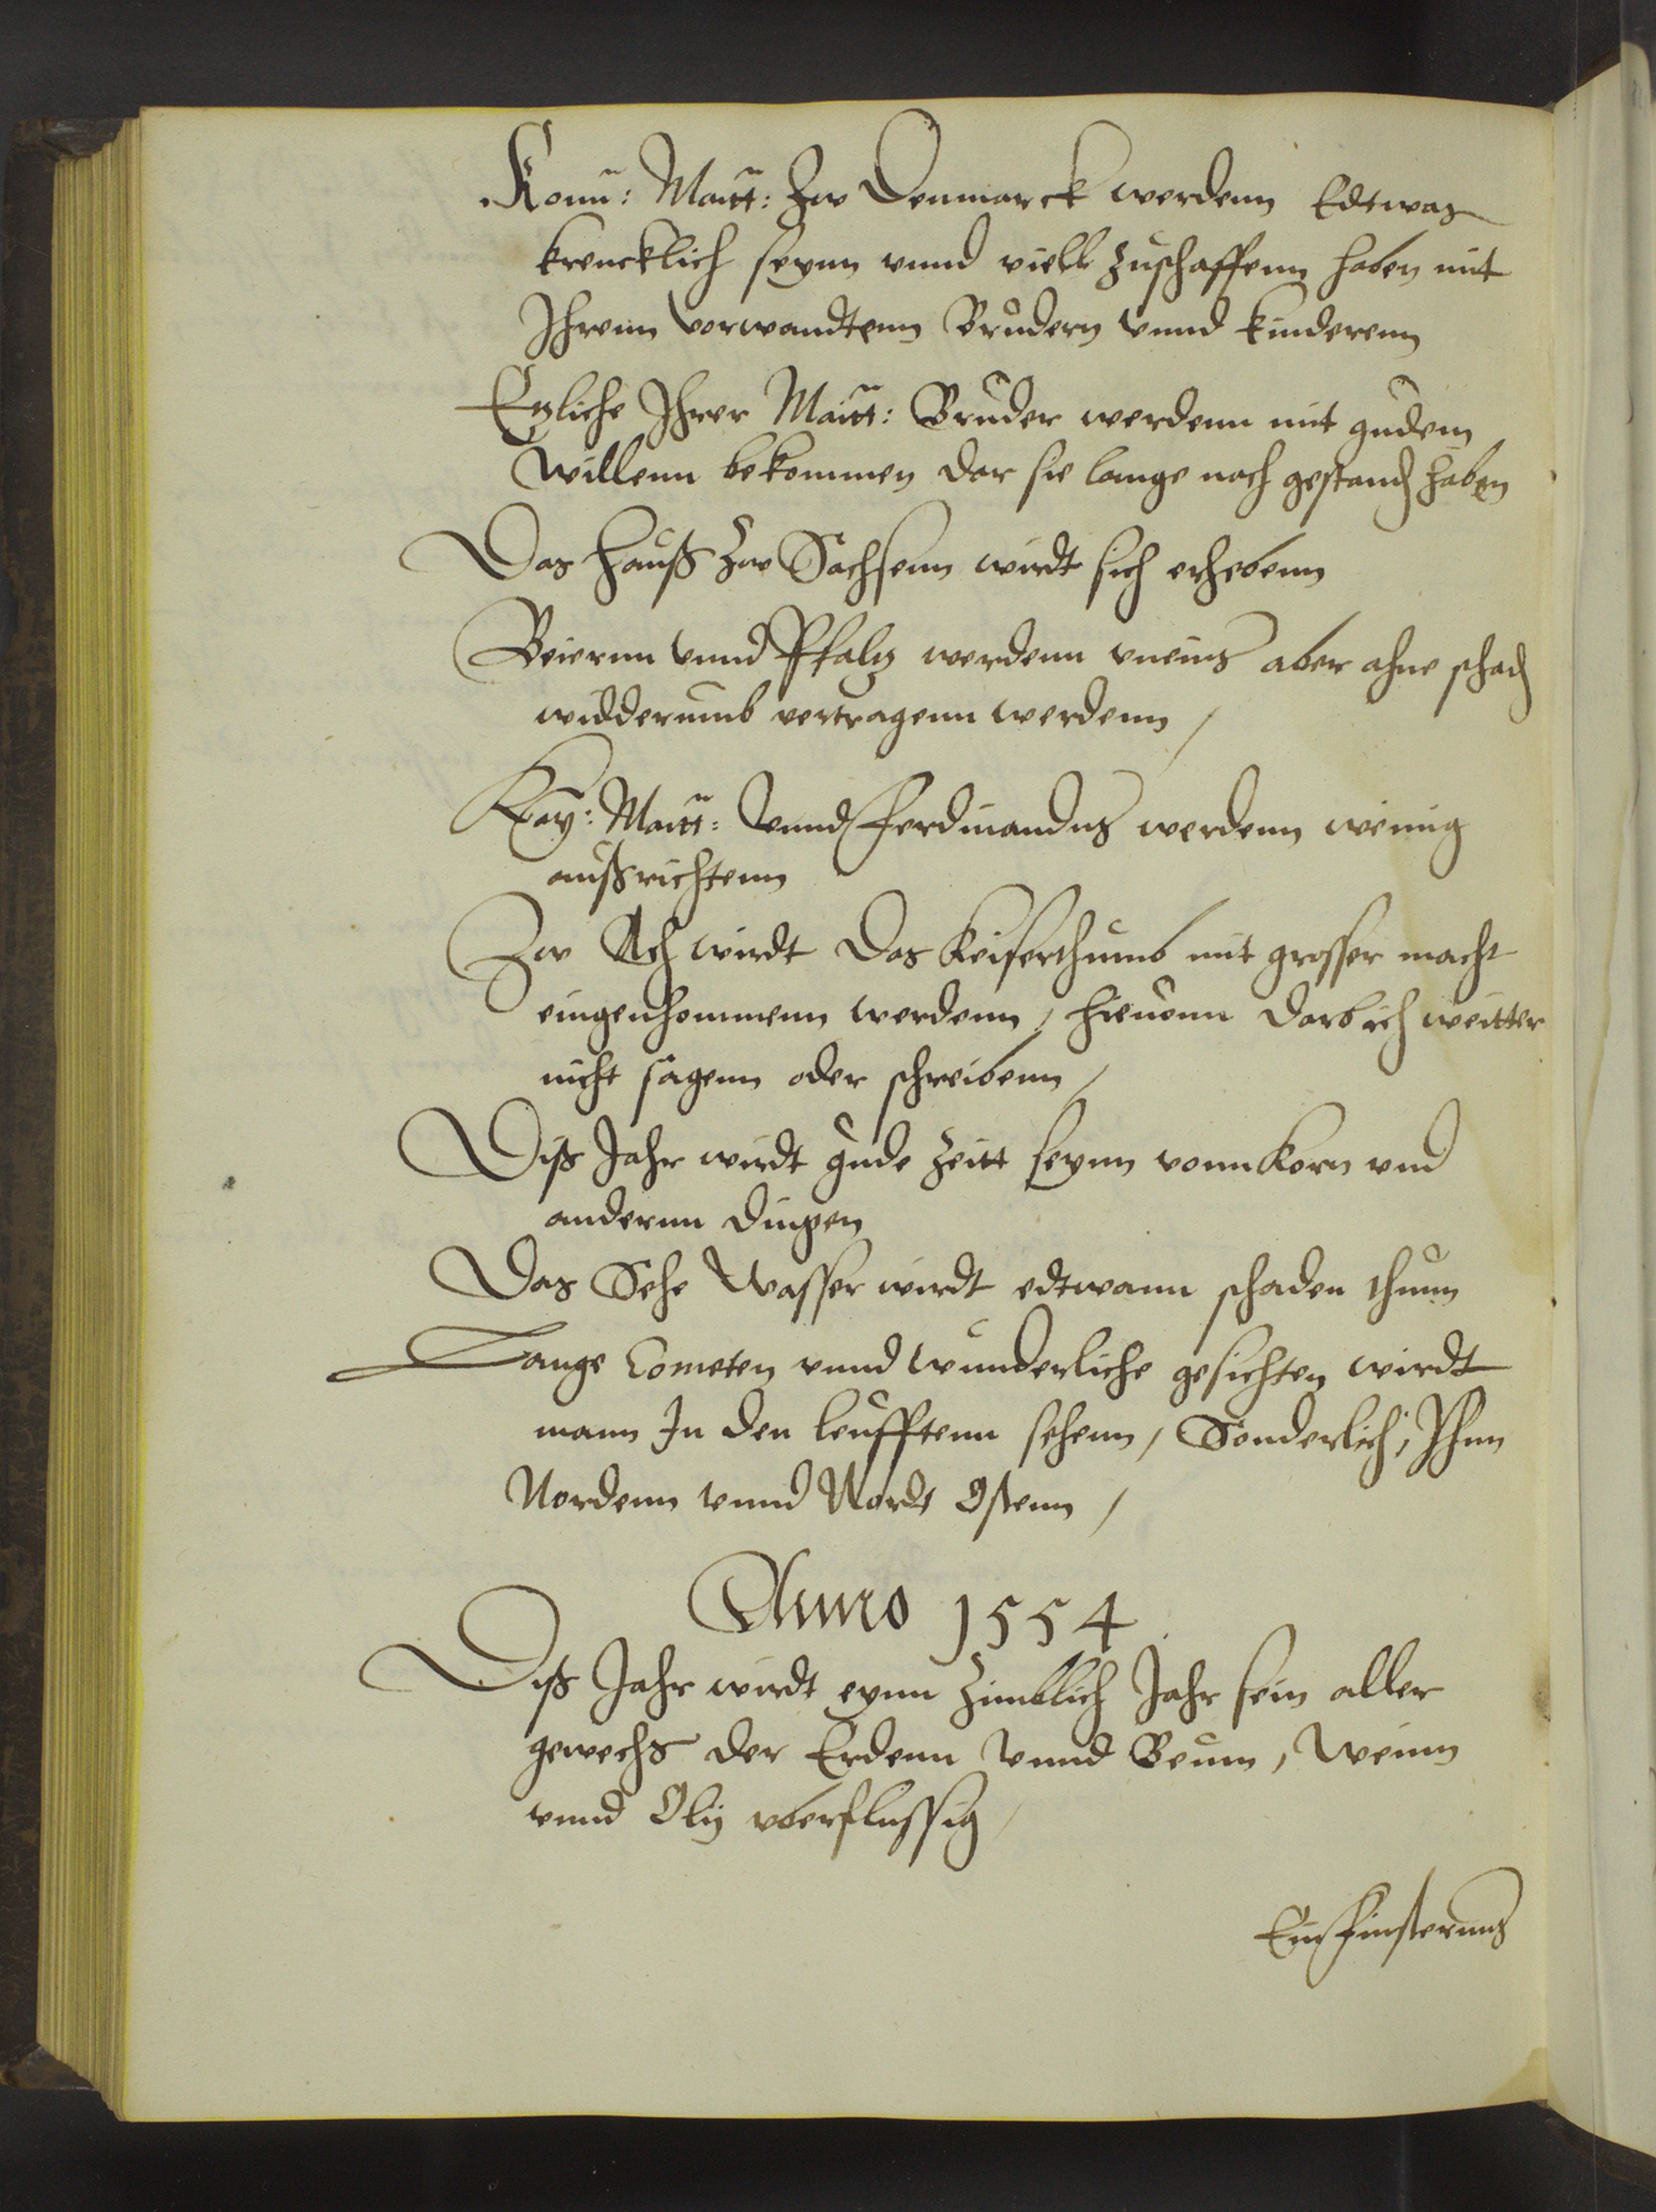 Konn: Maitt: Zw Denmarck werdenn Edtwas
krencklich seynn vnnd viell zuschaffenn haben mit
Ihrenn Vorwandtenn Brudern vnnd kinderenn
Ezliche Ihrer Maitt: Bruder werdenn mit gudem
Willenn bekommen dar sie lange nach gestand haben
Das Hauß zw Sachsenn wirdt sich erhebenn
Beiernn vnnd Pfalz werdenn vneins aber ahne schad
widderumb vertragenn werdenn /
Kay: Maitt: Vnnd Ferdinandus werdenn weinig
außrichtenn
Zw Ach wirdt das Keiserthumb mit grosser macht
eingenhommenn werdenn / hieuonn darb ich weitter
nicht sagenn oder schreibenn /
Diß Jahr wirdt gude Zeitt seynn vonn Korn vnd
andernn dingen
Das Sehe Wasser wirdt edtwann schaden thunn
Lange Cometen vnnd wunderliche gesichten wirdt
mann In den leufftenn sehenn / Sonderlich / Ihnn
Nordenn vnnd Nordt Ostenn /
Anno 1554
Diß Jahr wirdt eynn Zimblich Jahr sein aller
gewechs der Erdenn Vnnd Beum, Weinn
vnnd Olig vberflussig /
Ein finsternus